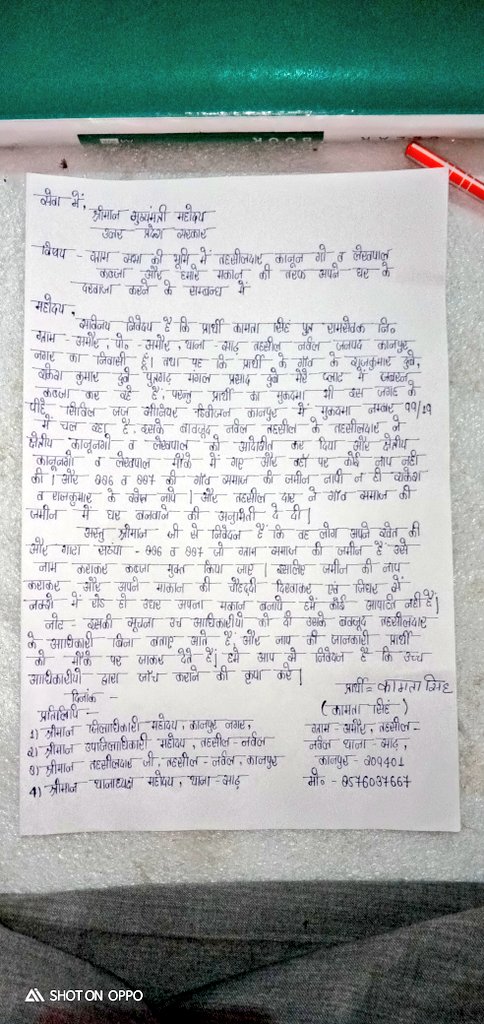 सेवा में,
श्रीमान मुख्यमंत्री महोदय
उत्तर प्रदेश सरकार
विषय - ग्राम सभा की भूमि में तहसीलदार कानून गो व लेखपाल
कब्जा और हमारे मकान की तरफ अपने घर के
दरवाजा करने के सम्बन्ध में
महोदय,
सविनय निवेदन है कि प्रार्थी कामता सिंह पुत्र रामसेवक नि०
ग्राम - अमौर, पो० - अमौर, थाना - साढ़ तहसील नर्वल जनपद कानपुर
नगर का निवासी हूँ। तथा यह कि प्रार्थी के गाँव के राजकुमार दुबे,
राकेश कुमार दुबे पुत्रगढ़ मंगल प्रसाद दुबे मेरे प्लाट में जबरन
कब्जा कर रहे हैं, परन्तु प्रार्थी का मुकदमा भी इस जगह के
पीछे सिविल जज सीनियर डिवीजन कानपुर में मुकदमा नम्बर 99/19
में चल रहा है, इसके बावजूद नर्वल तहसील के तहसीलदार ने
क्षेत्रीय कानूनगो व लेखपाल को आदेशित कर दिया और क्षेत्रीय
कानूनगो व लेखपाल मौके में गए और वहाँ पर कोई नाप नही
की। और 996 व 997 की गाँव समाज की जमीन नापी न ही राकेश
व राजकुमार के खेत नापे। और तहसील दार ने गाँव समाज की
जमीन में घर बनवाने की अनुमति दे दी।
अस्तु श्रीमान जी से निवेदन है कि वह लोग अपने खेत की
और गाटा संख्या - 996 व 997 जो ग्राम समाज की जमीन है उसे
नाम कराकर कब्जा मुक्त किया जाए। इसलिए जमीन की नाप
कराकर और अपने मकान की चौहद्दी दिखाकर एवं जिधर से
नक्शे में रोड हो उधर अपना मकान बनाये हमें कोई आपत्ति नही है।
नोट - इसकी सूचना उच अधिकारीयो को दी उसके बवजूद तहसीलदार
के अधिकारी बिना बताए आते हैं, और नाप की जानकारी प्रार्थी
को मौके पर जाकर देते हैं। हमे आप से निवेदन है कि उच्च
अधिकारीयो द्वारा जाँच कराने की कृपा करे।
दिनांक -
प्रार्थी = कामता सिंह
प्रतिलिपि -
( कामता सिंह )
1) श्रीमान जिलाधिकारी महोदय, कानपुर नगर,
ग्राम - अमौर, तहसील -
2) श्रीमान उपजिलाधिकारी महोदय, तहसील - नर्वल
नर्वल थाना - साढ़,
3) श्रीमान तहसीलदार जी, तहसील - नर्वल, कानपुर
कानपुर - 209401
4) श्रीमान थानाध्यक्ष महोदय, थाना - साढ़
मो० - 9576037667
SHOT ON OPPO